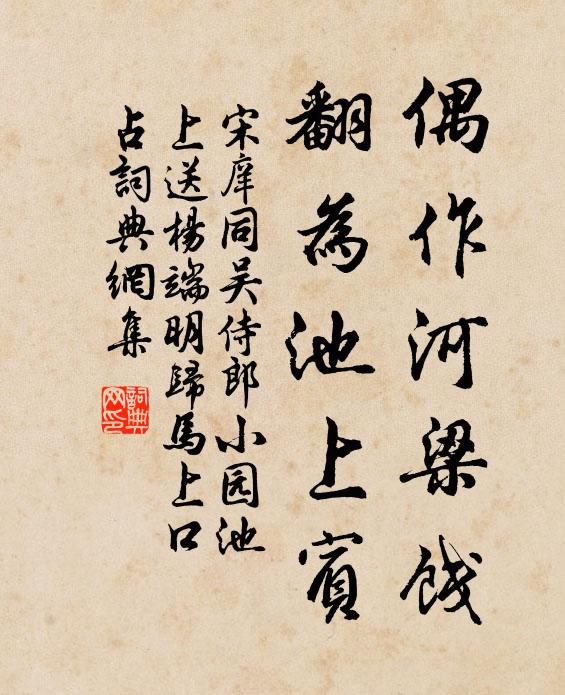 偶作河梁餞
翻為池上賓
宋庠同吴侍郎小园池
上送楊端明歸馬上口
占詞典網集
詞典
网印